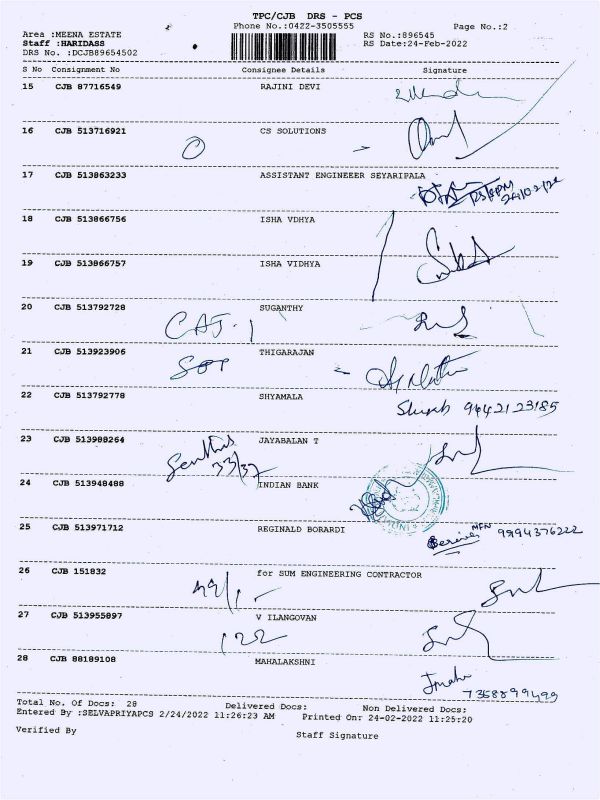 TPC/CJB DRS - PCS
Phone No.:0422-3505555 Page No.:2
Area :MEENA ESTATE RS No.:896545
Staff :HARIDASS RS Date:24-Feb-2022
DRS No. :DCJB89654502
S No Consignment No Consignee Details Signature
15 CJB 87716549 RAJINI DEVI
16 CJB 513716921 CS SOLUTIONS
17 CJB 513863233 ASSISTANT ENGINEEER SEYARIPALA
24/02/22
18 CJB 513866756 ISHA VDHYA
19 CJB 513866757 ISHA VIDHYA
20 CJB 513792728 SUGANTHY
CAT-1
21 CJB 513923906 THIGARAJAN
22 CJB 513792778 SHYAMALA
9442123185
23 CJB 513988264 JAYABALAN T
33/37
24 CJB 513948488 INDIAN BANK
25 CJB 513971712 REGINALD BORARDI
9994376222
26 CJB 151832 for SUM ENGINEERING CONTRACTOR
27 CJB 513955897 V ILANGOVAN
122
28 CJB 88189108 MAHALAKSHNI
7368899499
Total No. Of Docs: 28 Delivered Docs: Non Delivered Docs:
Entered By :SELVAPRIYAPCS 2/24/2022 11:26:23 AM Printed On: 24-02-2022 11:25:20
Verified By Staff Signature